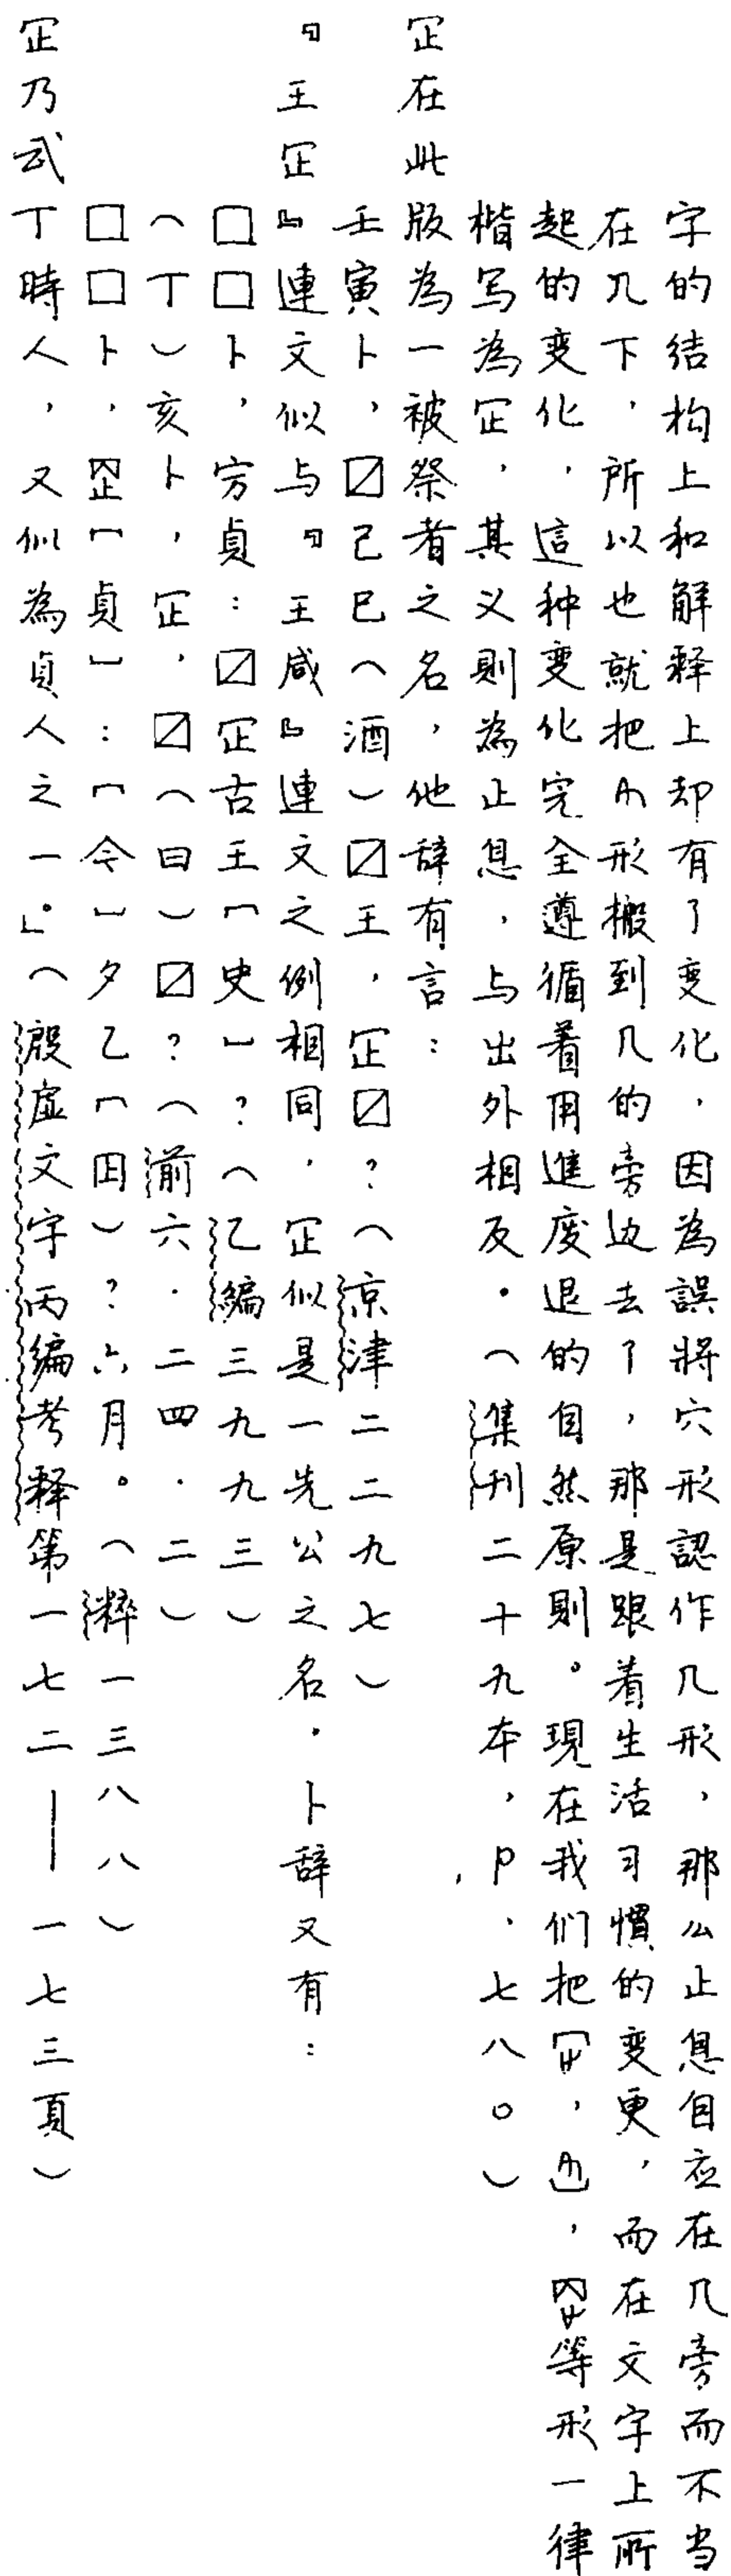 字的结构上和解释上却有了变化，因為誤將穴形認作几形，那么止息自应在几旁而不当
在几下，所以也就把形搬到几的旁边去了，那是跟着生活习慣的变更，而在文字上所
起的变化，這种变化完全遵循着用進废退的自然原則。現在我们把，，等形一律
楷写為㱏，其义則為止息，与出外相反。（集刊二十九本，P.七八〇）
㱏在此版為一被祭者之名，他辞有言：
壬寅卜，☑己巳（酒）☑王，㱏☑？（京津二二九七）
『王㱏』連文似与『王咸』連文之例相同，㱏似是一先公之名。卜辞又有：
□□卜，㝑貞：☑㱏古王〔史〕？（乙編三九九三）
（丁）亥卜，㱏，☑（曰）☑？（前六·二四·二）
□□卜，㱏〔貞〕：〔今〕夕乙〔囚）？六月。（粹一三八八）
㱏乃武丁時人，又似為貞人之一。」（殷虛文字丙編考释第一七二——一七三頁）